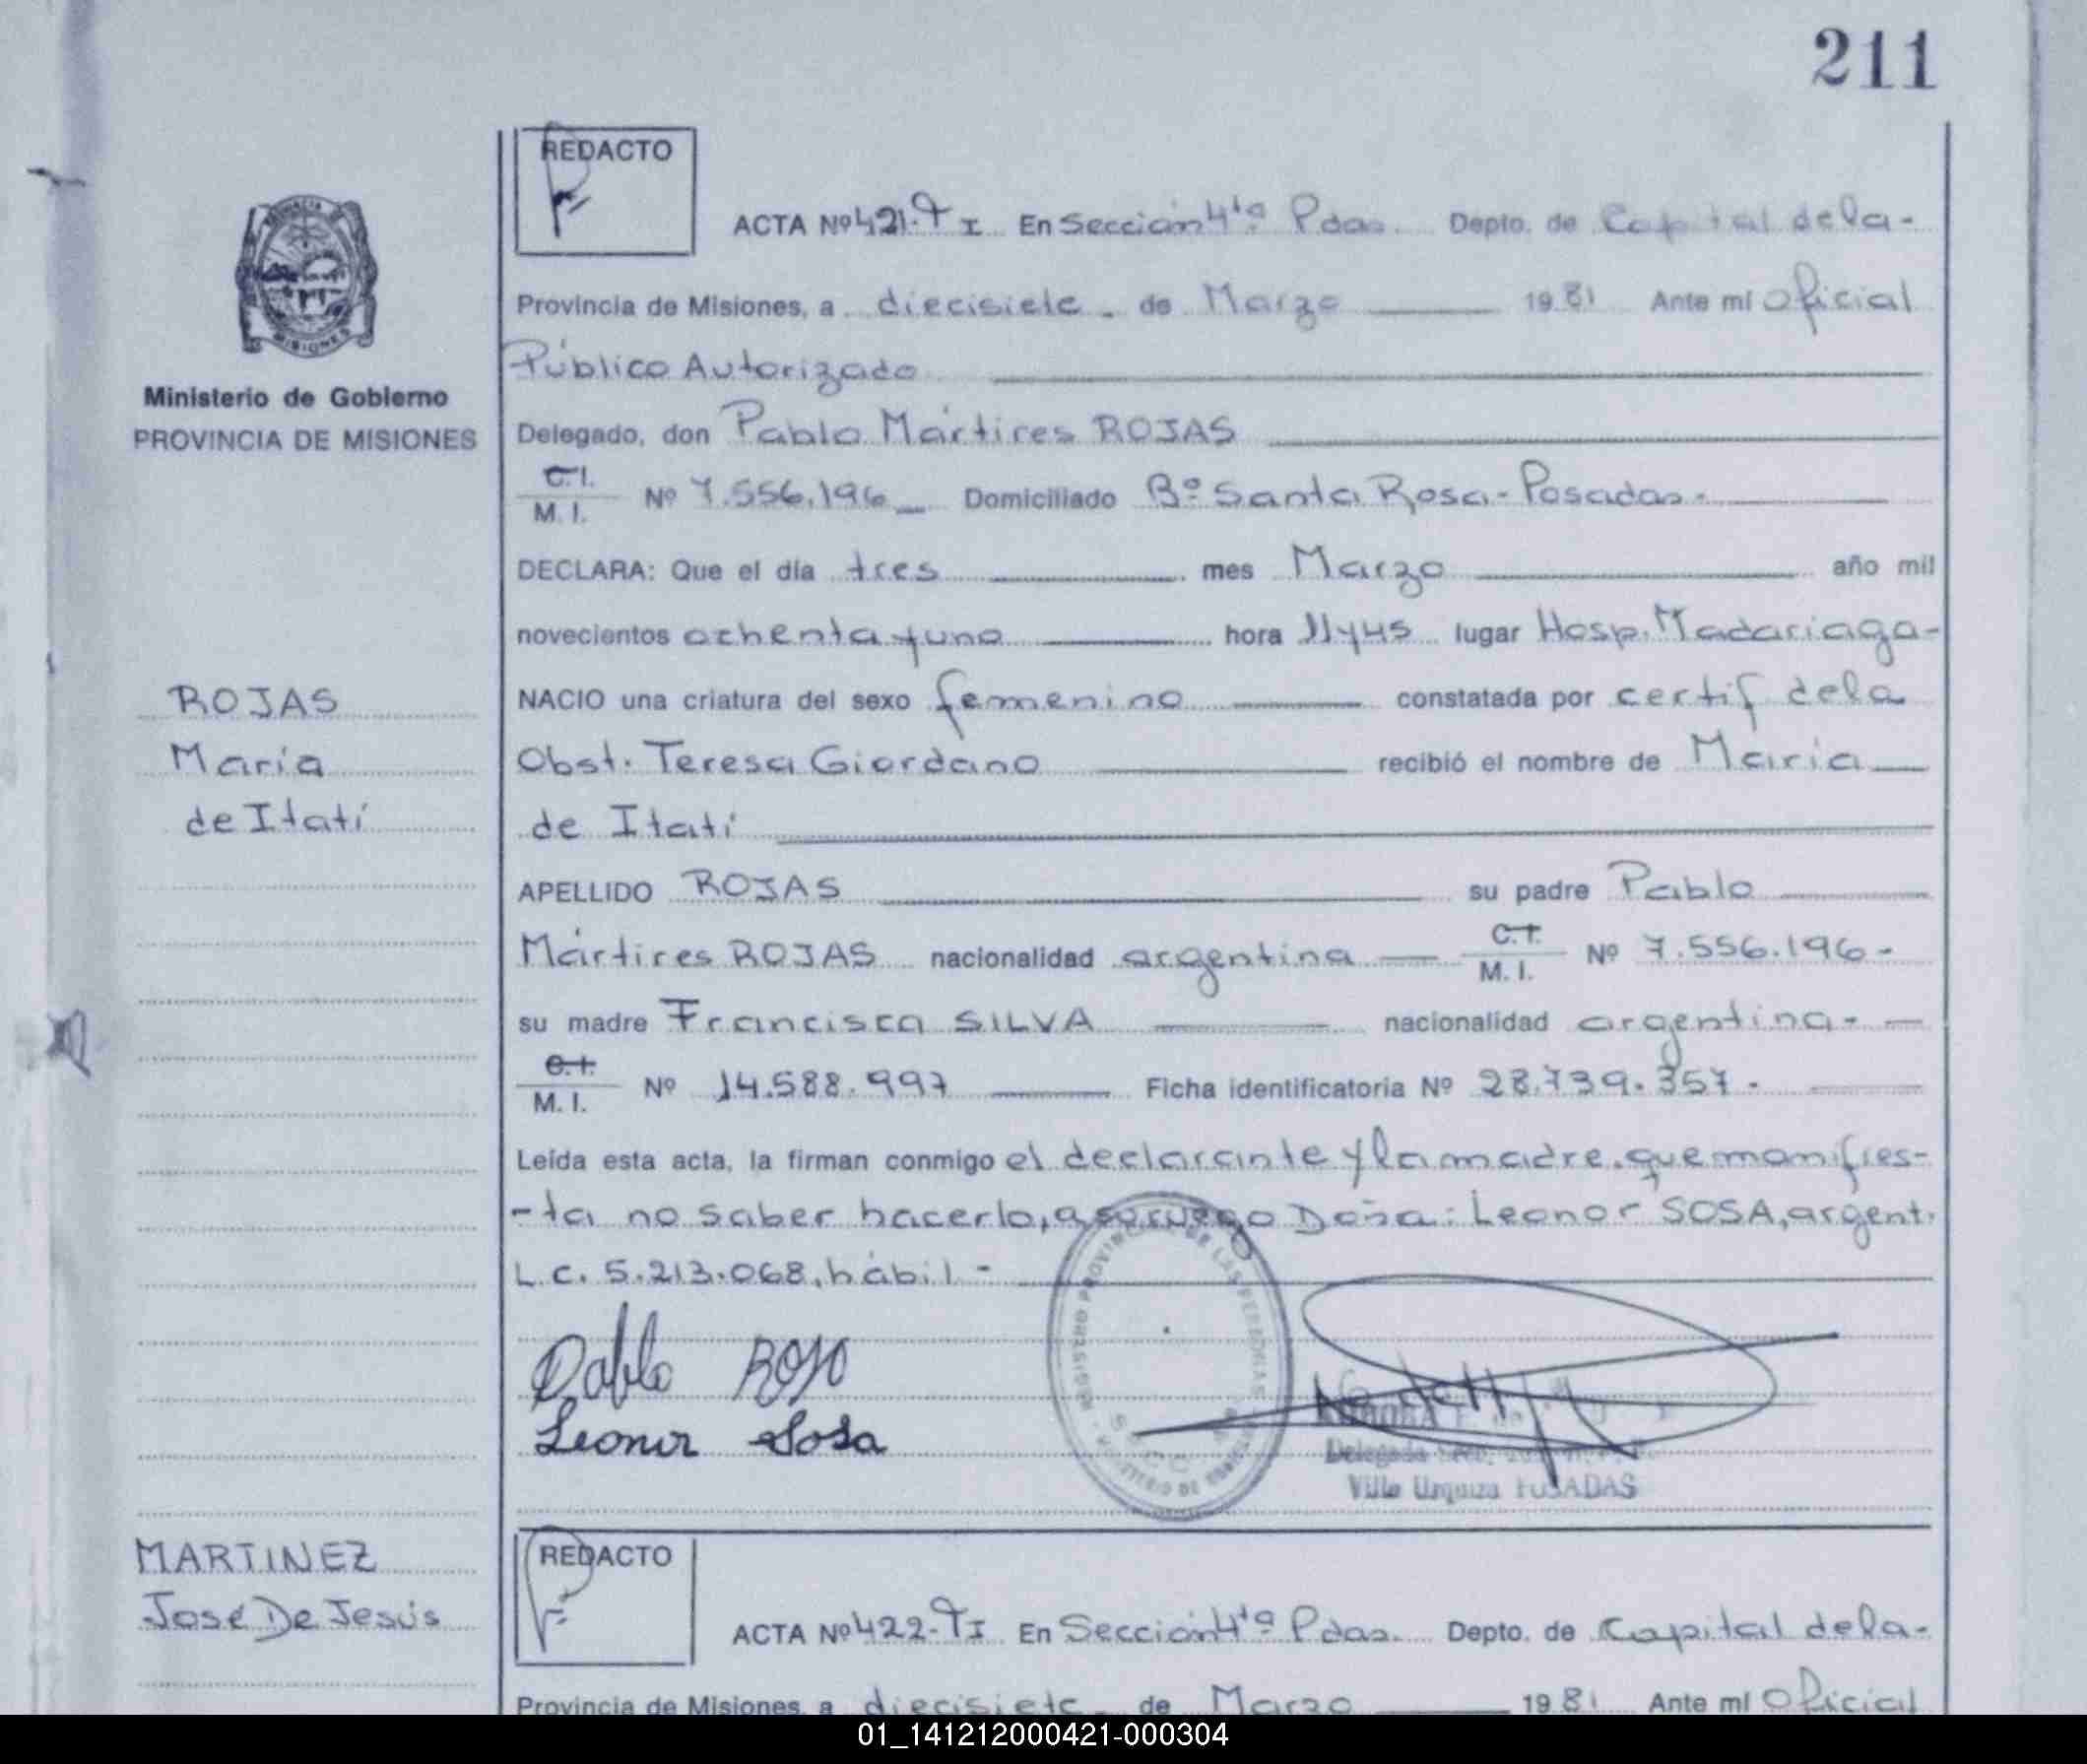 211
REDACTO
ACTA Nº 421-TI En Sección 4ta Pdas. Depto. de Capital de la-
Provincia de Misiones, a diecisiete - de Marzo 1981 Ante mí Oficial
Público Autorizado
Ministerio de Gobierno
PROVINCIA DE MISIONES
Delegado, don Pablo Mártires ROJAS
C.I.
M.I. Nº 7.556.196 Domiciliado Bº Santa Rosa - Posadas.
DECLARA: Que el día tres mes Marzo año mil
novecientos ochenta y uno hora 11 y 45 lugar Hosp. Madariaga-
ROJAS
María
de Itatí
NACIO una criatura del sexo femenino constatada por certif de la
Obst. Teresa Giordano recibió el nombre de María
de Itatí
APELLIDO ROJAS su padre Pablo
Mártires ROJAS nacionalidad argentina C.I.
M.I. Nº 7.556.196-
su madre Francisca SILVA nacionalidad argentina-
C.I.
M.I. Nº 14.588.997 Ficha identificatoria Nº 28.739.357.
Leída esta acta, la firman conmigo el declarante y la madre, que manifies-
-ta no saber hacerlo, a su ruego Doña: Leonor SOSA, argent.
L.C. 5.213.068, hábil-
Pablo Rojo
Leonor Sosa
Delegada
Villa Urquiza POSADAS
MARTINEZ
José De Jesús
REDACTO
ACTA Nº 422-TI En Sección 4ta Pdas. Depto. de Capital de la-
Provincia de Misiones, a diecisiete - de Marzo 1981 Ante mí Oficial
01_141212000421-000304